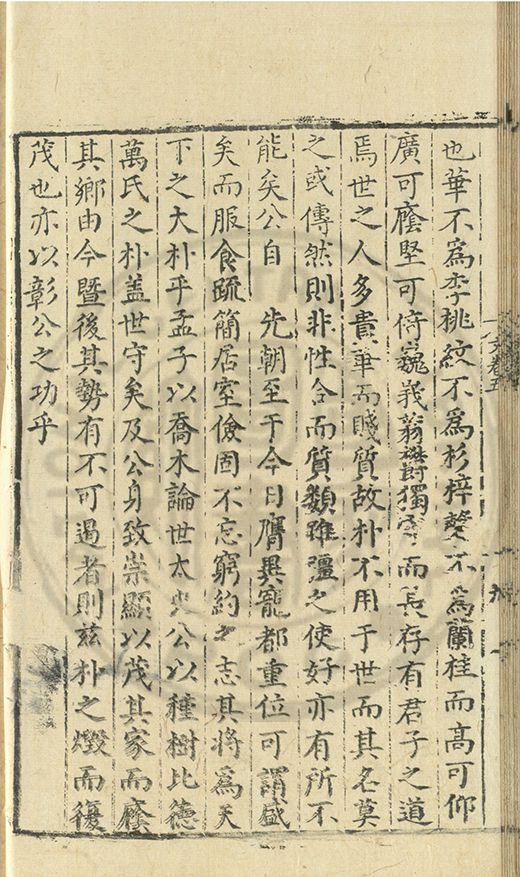 也華不爲李桃紋不爲杉梓馨不爲蘭桂而高可仰
廣可癊堅可倚巍義蓊欝獨寒而長存有君子之道
焉世之人多貴華而賤質故朴不用于世而其名莫
之或傳然則非性合而質類雖彊之使好亦有所不
能矣公自 先朝至于今日膺異寵都重位可謂盛
矣而服食疏簡居室儉固不忘窮約之志其將爲天
下之大朴乎孟子以喬木論世太史公以種樹比德
萬氏之朴盖世守矣及公身致崇顯以茂其家而癊
其鄉由今暨後其勢有不可遏者則玆朴之燬而復
茂也亦以彰公之功乎
文卷五